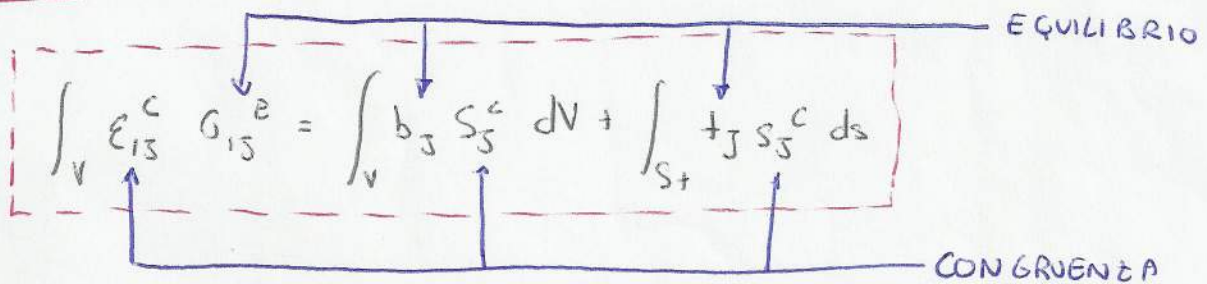 EQUILIBRIO
∫_V ε_{ij}^c σ_{ij}^e = ∫_V b_j s_j^c dV + ∫_{St} t_j s_j^c ds
CONGRUENZA